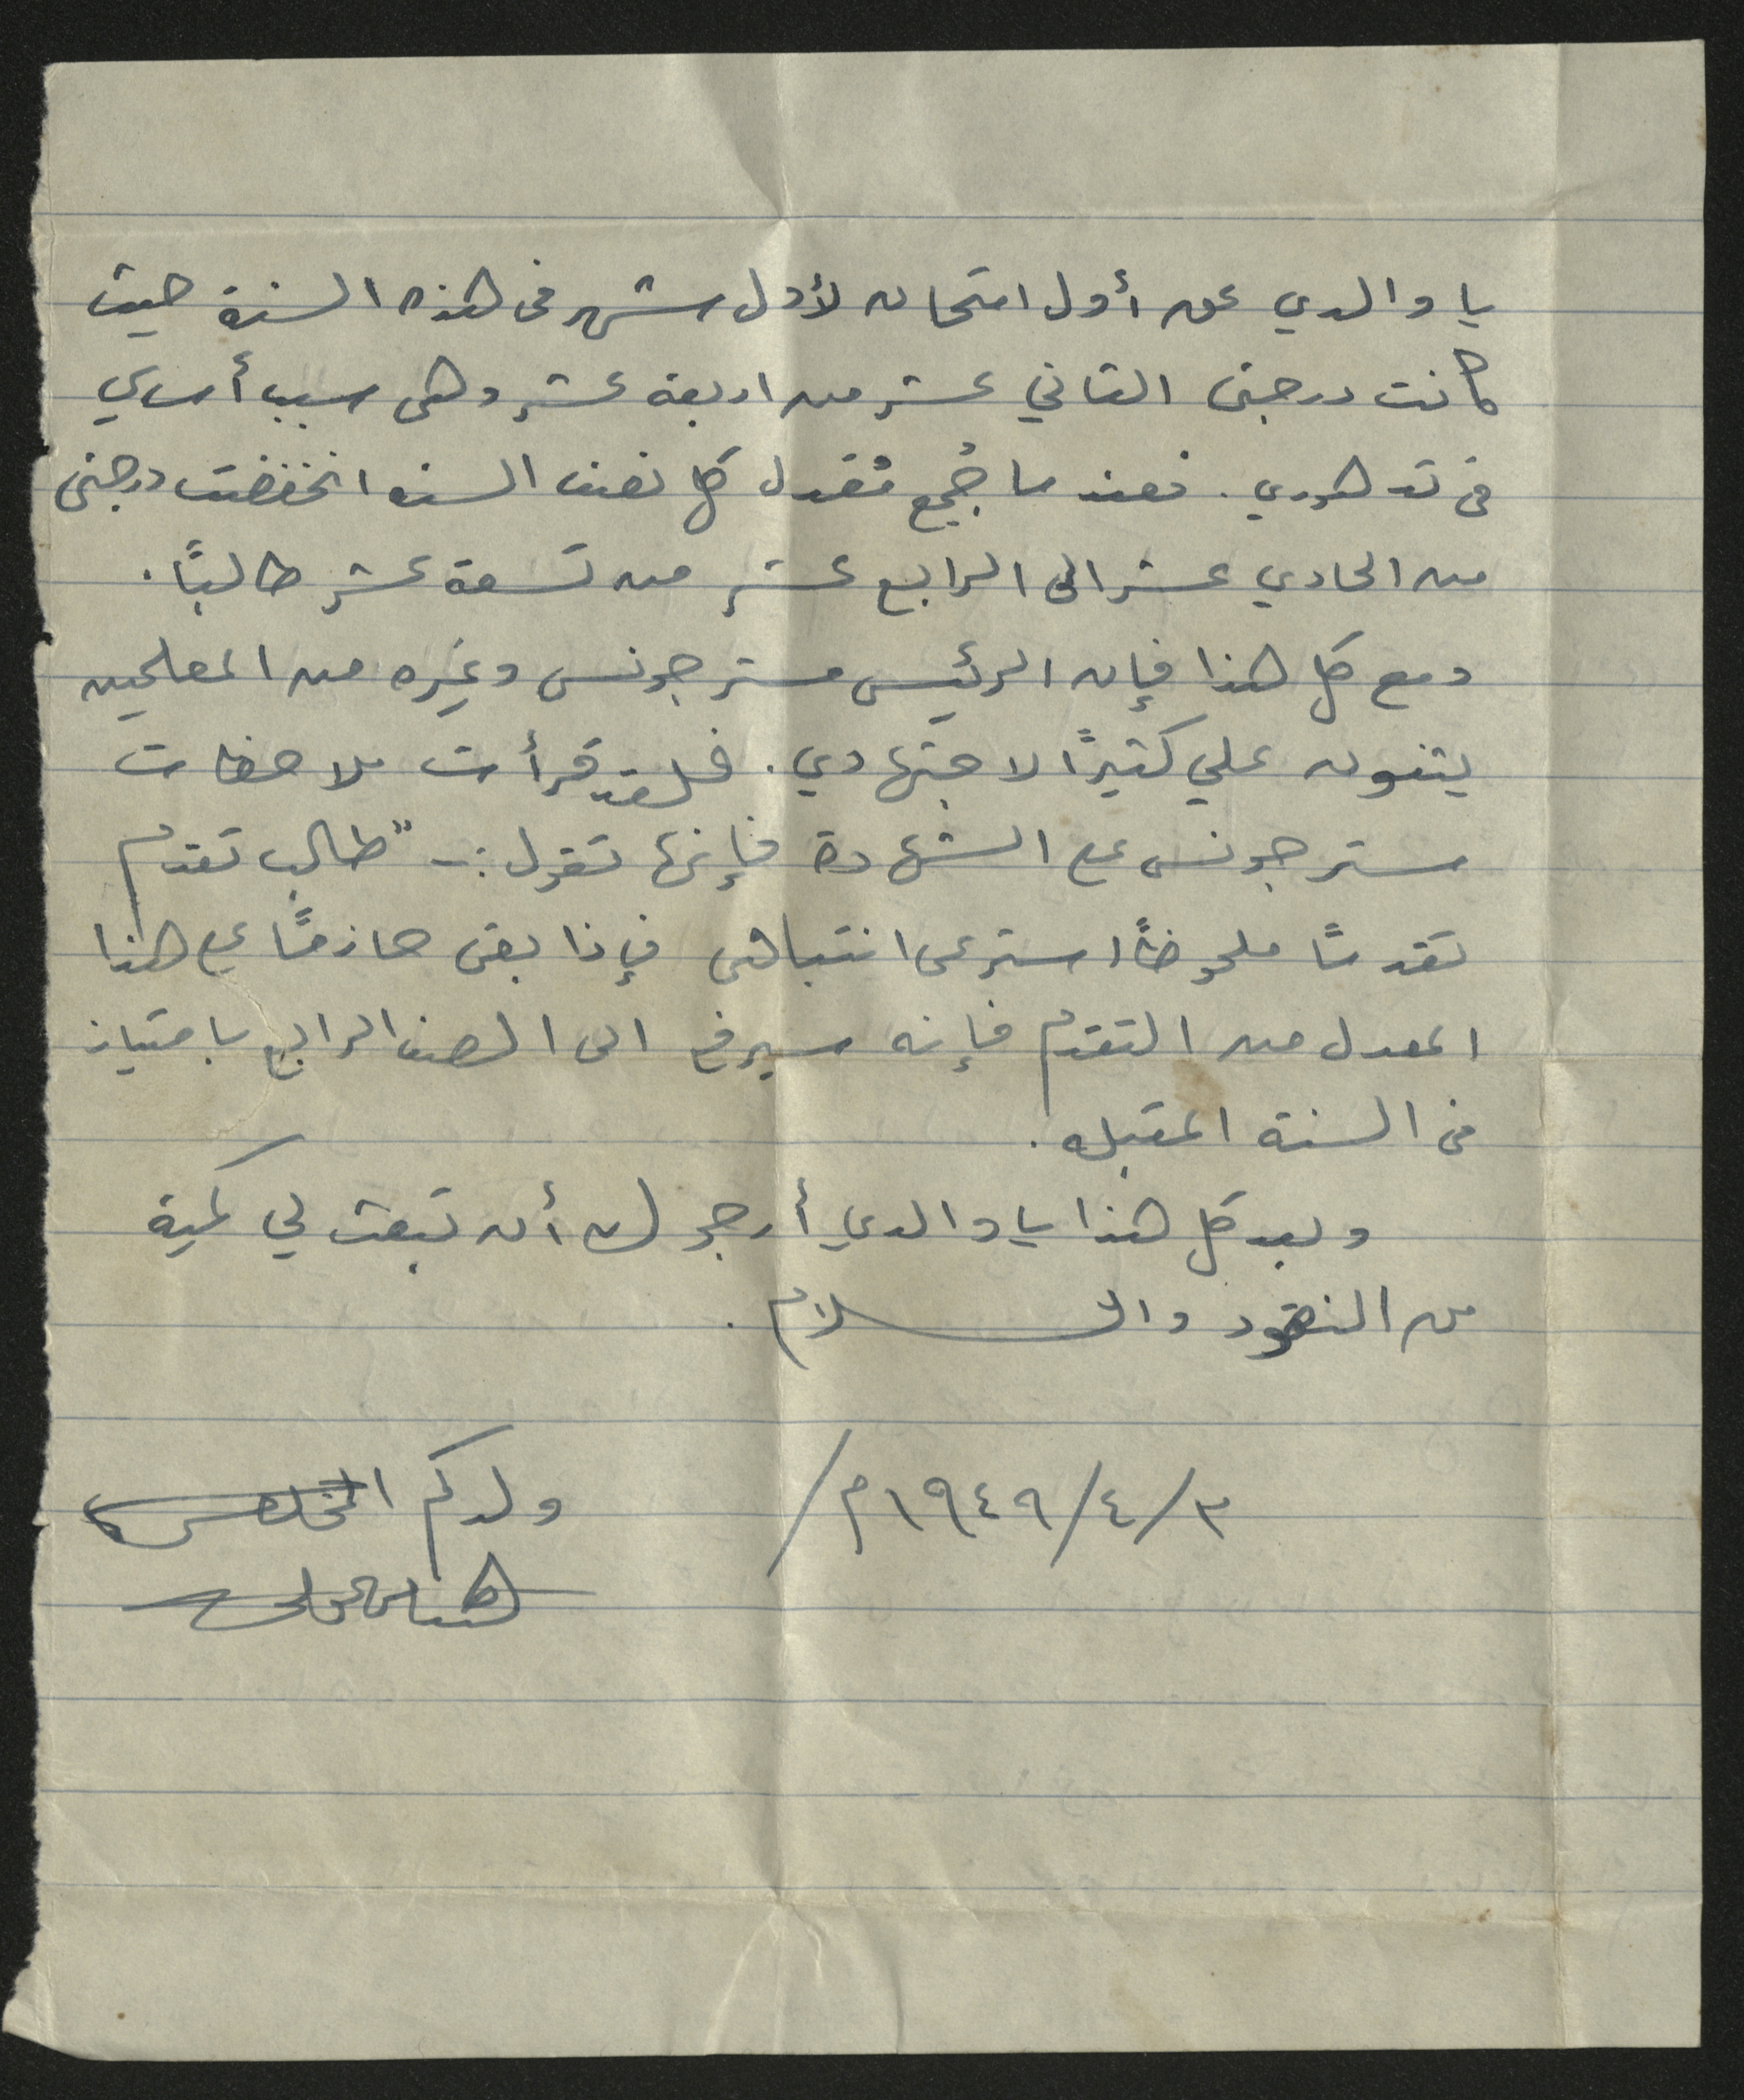 يا والدي عن أول امتحان لأول شهر فى هذه السنة حيث
كانت درجتى الثاني عشر من اربعة عشر وهى سبب أساسي
فى تدهوري. فعندما جُمع مُعدل كل نصف السنه انخفضت درجتى
من الحادي عشر الى الرابع عشر من تسعة عشر طالبًا.
ومع كل هذا فإن الرئيس مستر جونس وغيره من المعلمين
يثنون علي كثيرًا لاجتهادي. فلقد قرأت ملاحظات
مستر جونس على الشهادة فإنها تقول :- "طالب تقدم
تقدمًا ملحوظًا استرعى انتباهى فإذا بقى حازمًا على هذا
المعدل من التقدم فإنه سيرفع الى الصف الرابع بامتياز
فى السنة المقبله.
وبعد كل هذا يا والدي أرجو لك أن تبعث لي كمية
من النقود والسلام.
٣/٤/١٩٤٩م/
ولدكم المخلص